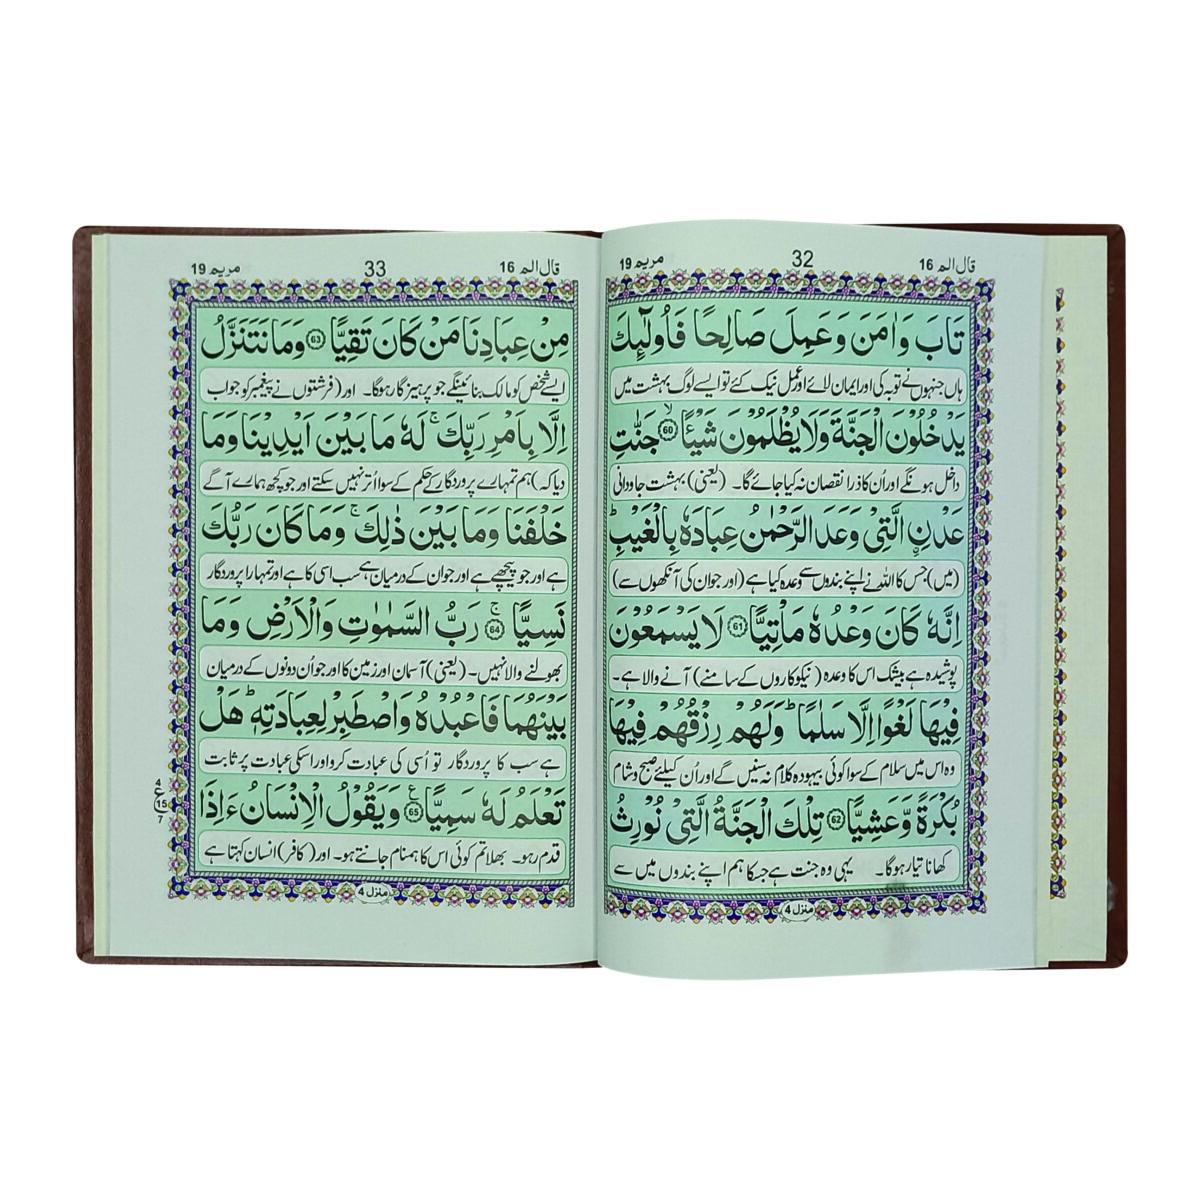 قال الم 16
32
مریم 19
تَابَ وَاٰمَنَ وَعَمِلَ صَالِحًا فَاُولٰٓئِكَ
ہاں جنہوں نے توبہ کی اور ایمان لائے اور عمل نیک کئے تو ایسے لوگ بہشت میں
يَدْخُلُوْنَ الْجَنَّةَ وَلَا يُظْلَمُوْنَ شَيْـًٔا ۙ60 جَنّٰتِ
داخل ہونگے اور اُن کا ذرا نقصان نہ کیا جائے گا۔ (یعنی) بہشت جاودانی
عَدْنِ ۨالَّتِيْ وَعَدَ الرَّحْمٰنُ عِبَادَهٗ بِالْغَيْبِ ؕ
(میں) جس کا اللہ نے اپنے بندوں سے وعدہ کیا ہے (اور جو ان کی آنکھوں سے)
اِنَّهٗ كَانَ وَعْدُهٗ مَاْتِيًّا 61 لَا يَسْمَعُوْنَ
پوشیدہ ہے بیشک اس کا وعدہ (نیکو کاروں کے سامنے) آنے والا ہے۔
فِيْهَا لَغْوًا اِلَّا سَلٰمًا ؕ وَلَهُمْ رِزْقُهُمْ فِيْهَا
وہ اس میں سلام کے سوا کوئی بیہودہ کلام نہ سنیں گے اور اُن کیلئے صبح و شام
بُكْرَةً وَّعَشِيًّا 62 تِلْكَ الْجَنَّةُ الَّتِيْ نُوْرِثُ
کھانا تیار ہوگا۔ یہی وہ جنت ہے جسکا ہم اپنے بندوں میں سے
منزل 4
قال الم 16
33
مریم 19
مِنْ عِبَادِنَا مَنْ كَانَ تَقِيًّا 63 وَمَا نَتَنَزَّلُ
ایسے شخص کو مالک بنائینگے جو پرہیز گار ہوگا۔ اور (فرشتوں نے پیغمبر کو جواب
اِلَّا بِاَمْرِ رَبِّكَ ۚ لَهٗ مَا بَيْنَ اَيْدِيْنَا وَمَا
دیا کہ) ہم تمہارے پروردگار کے حکم کے سوا اُتر نہیں سکتے اور جو کچھ ہمارے آگے
خَلْفَنَا وَمَا بَيْنَ ذٰلِكَ ۚ وَمَا كَانَ رَبُّكَ
ہے اور جو پیچھے ہے اور جو ان کے درمیان ہے سب اسی کا ہے اور تمہارا پروردگار
نَسِيًّا ۚ64 رَبُّ السَّمٰوٰتِ وَالْاَرْضِ وَمَا
بھولنے والا نہیں۔ (یعنی) آسمان اور زمین کا اور جو اُن دونوں کے درمیان
بَيْنَهُمَا فَاعْبُدْهُ وَاصْطَبِرْ لِعِبَادَتِهٖ ؕ هَلْ
ہے سب کا پروردگار تو اُسی کی عبادت کرو اور اسکی عبادت پر ثابت
تَعْلَمُ لَهٗ سَمِيًّا ع65 وَيَقُوْلُ الْاِنْسَانُ ءَاِذَا
قدم رہو۔ بھلا تم کوئی اس کا ہمنام جانتے ہو۔ اور (کافر) انسان کہتا ہے
4
ع 15
7
منزل 4